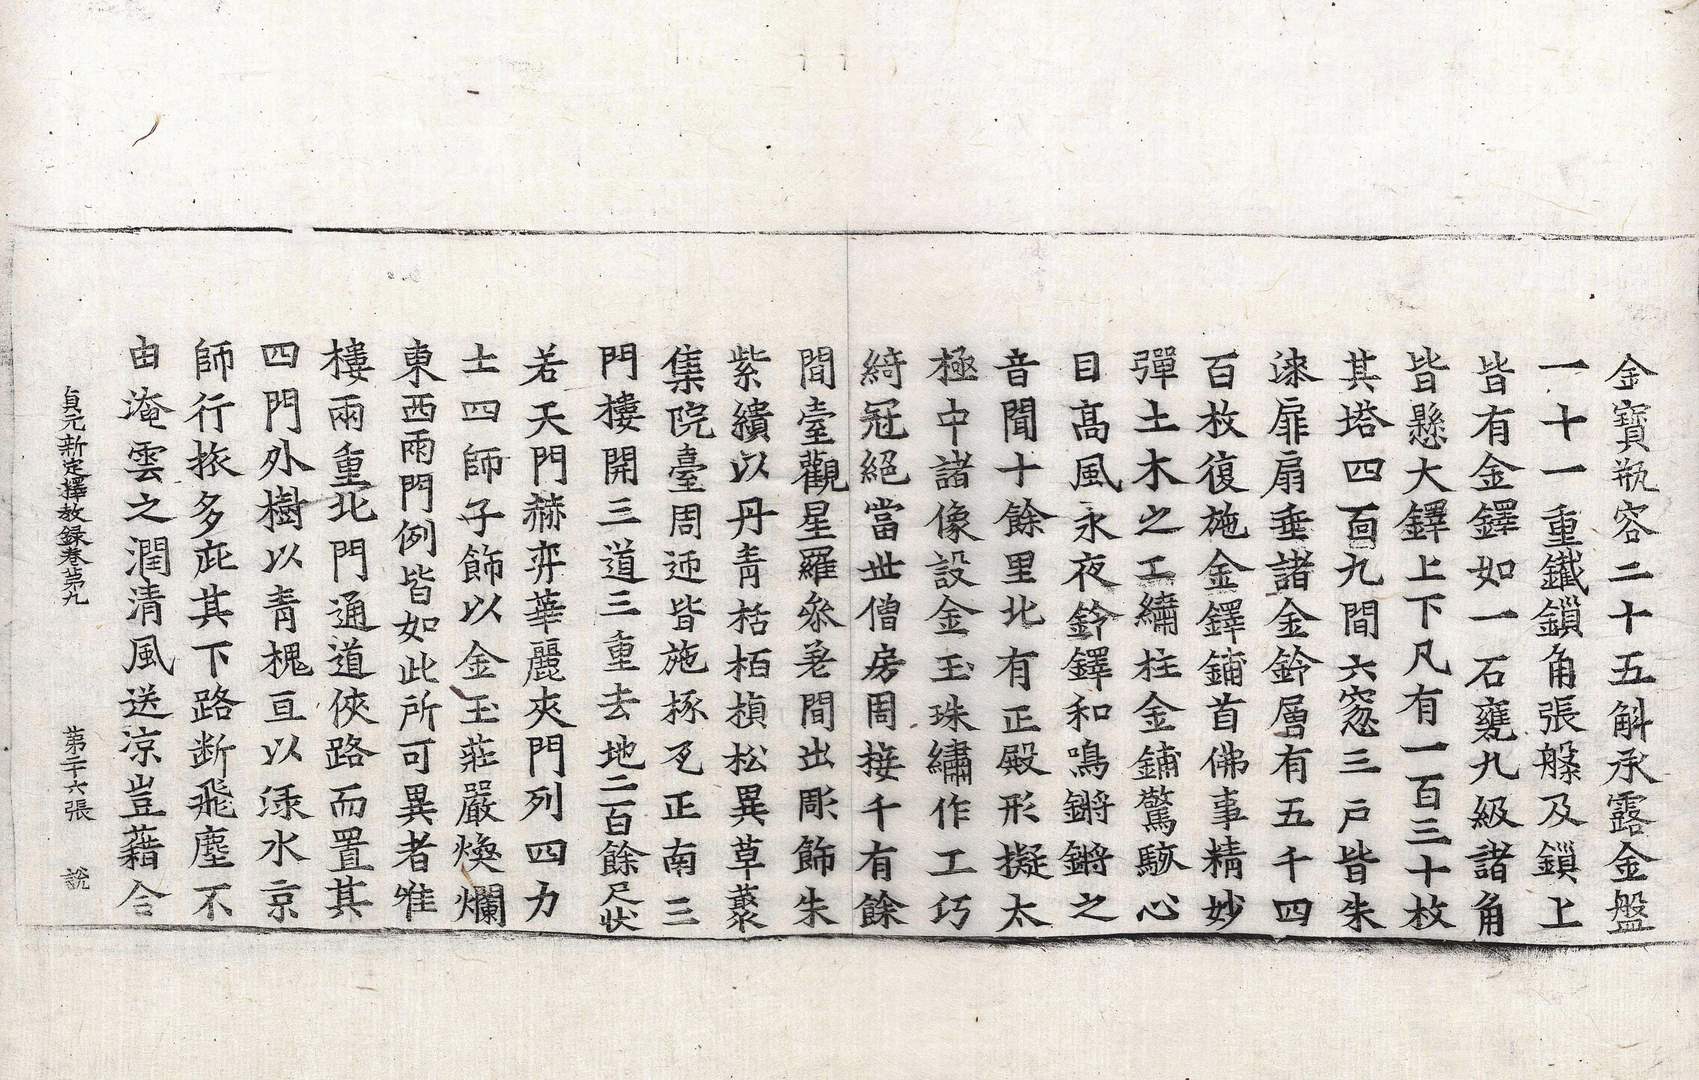 金寶瓶容二十五斛承露金盤
一十一重鐵鎖角張槃及鎖上
皆有金鐸如一石甕九級諸角
皆懸大鐸上下凡有一百三十枚
其塔四面九間六窓三戶皆朱
漆扉扇垂諸金鈴層有五千四
百枚復施金鐸鋪首佛事精妙
殫土木之工繡柱金鋪驚駭心
目高風永夜鈴鐸和鳴鏘鏘之
音聞十餘里北有正殿形擬太
極中諸像設金玉珠繡作工巧
綺冠絕當世僧房周接千有餘
間臺觀星羅叅差間出彫飾朱
紫繢以丹青栝栢楨松異草藂
集院臺周迊皆施椓瓦正南三
門樓開三道三重去地二百餘尺狀
若天門赫弈華麗夾門列四力
士四師子飾以金玉莊嚴煥爛
東西兩門例皆如此所可異者唯
樓兩重北門通道俠路而置其
四門外樹以青槐亘以淥水京
師行旅多庇其下路断飛塵不
由淹雲之潤清風送涼豈藉合
貞元新定擇教録卷苐九 苐二十六張 說